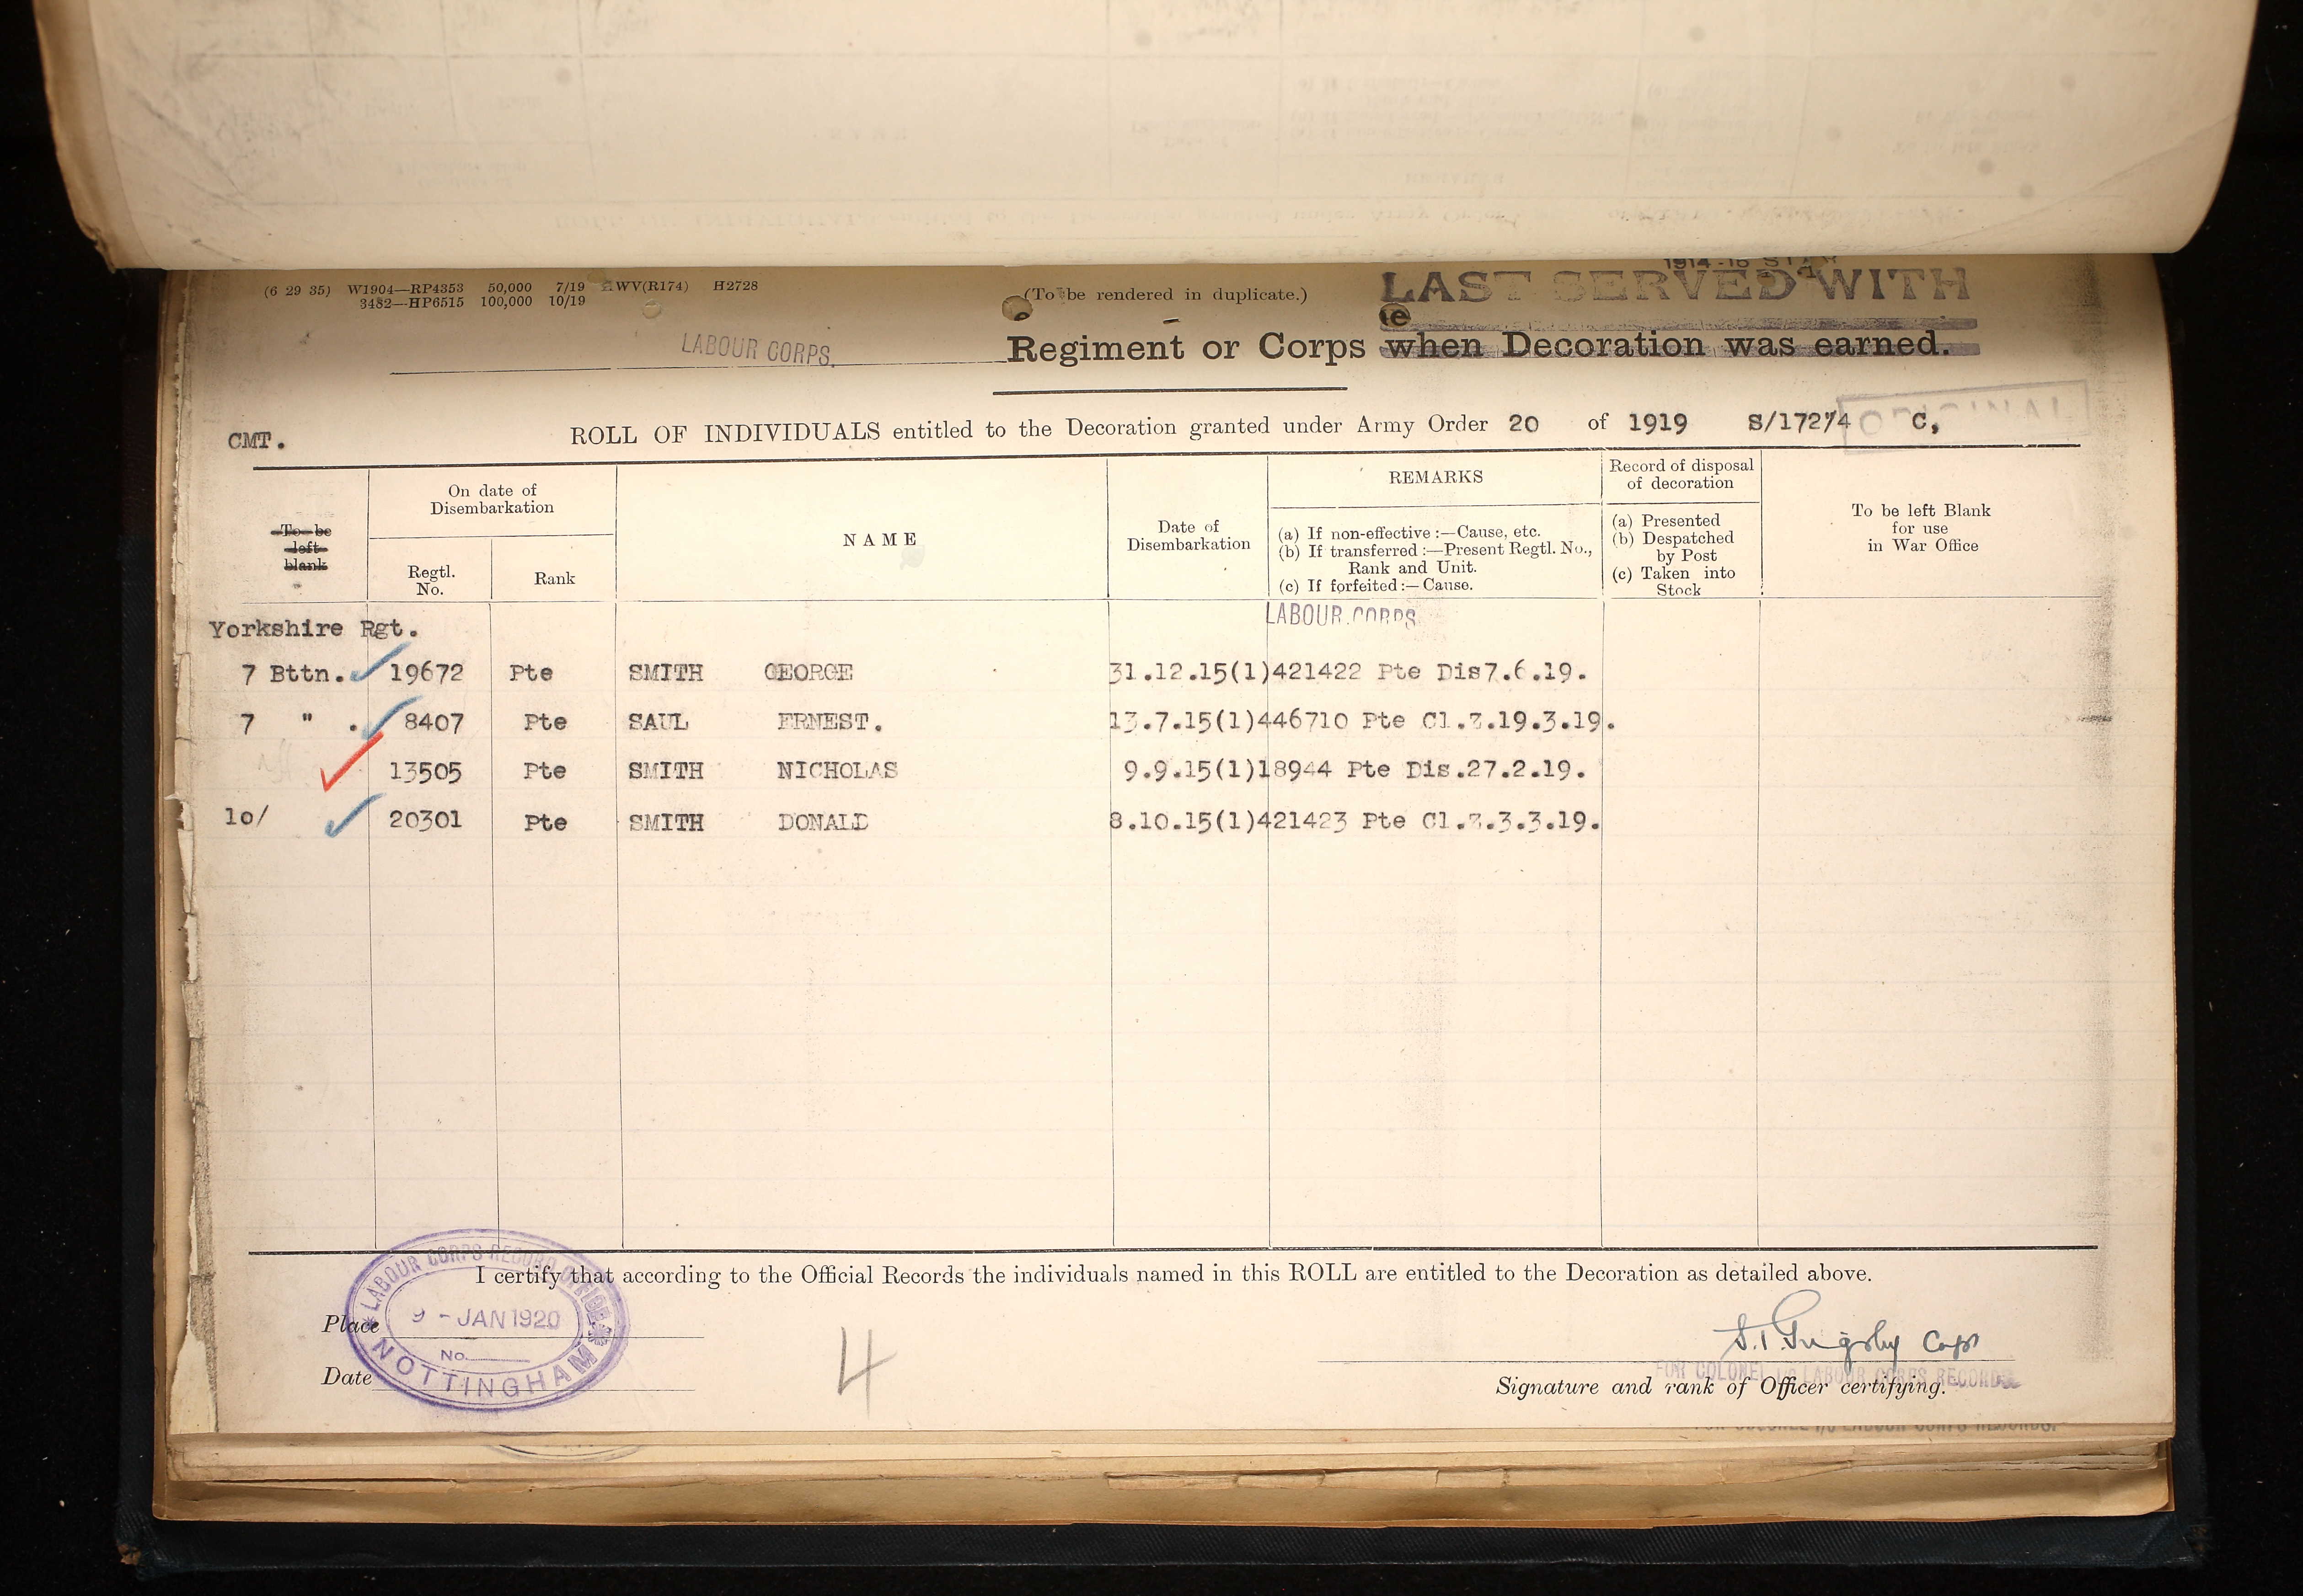 1914-15 STAR
(6 29 35) W1904—RP4353 50,000 7/19 HWV(R174) H2728
3482—HP6515 100,000 10/19
(To be rendered in duplicate.)
LAST SERVED WITH
LABOUR CORPS.
Regiment or Corps when Decoration was earned.
ORIGINAL
CMT.
ROLL OF INDIVIDUALS entitled to the Decoration granted under Army Order 20 of 1919 S/172"/4 C,
To be left blank
On date of Disembarkation
Regtl. No.
Rank
NAME
Date of Disembarkation
REMARKS
(a) If non-effective :—Cause, etc.
(b) If transferred :—Present Regtl. No., Rank and Unit.
(c) If forfeited :—Cause.
Record of disposal of decoration
(a) Presented
(b) Despatched by Post
(c) Taken into Stock
To be left Blank for use in War Office
LABOUR CORPS
Yorkshire Rgt.
7 Bttn. 19672 Pte SMITH GEORGE 31.12.15(1)421422 Pte Dis7.6.19.
7 " . 8407 Pte SAUL ERNEST. 13.7.15(1)446710 Pte Cl.Z.19.3.19.
13505 Pte SMITH NICHOLAS 9.9.15(1)18944 Pte Dis.27.2.19.
10/ 20301 Pte SMITH DONALD 8.10.15(1)421423 Pte Cl.Z.3.3.19.
I certify that according to the Official Records the individuals named in this ROLL are entitled to the Decoration as detailed above.
LABOUR CORPS RECORD OFFICE
9 - JAN 1920
No.
NOTTINGHAM
Place
Date
4
Capt
FOR COLONEL I/C LABOUR CORPS RECORDS
Signature and rank of Officer certifying.
FOR COLONEL I/C LABOUR CORPS RECORDS.